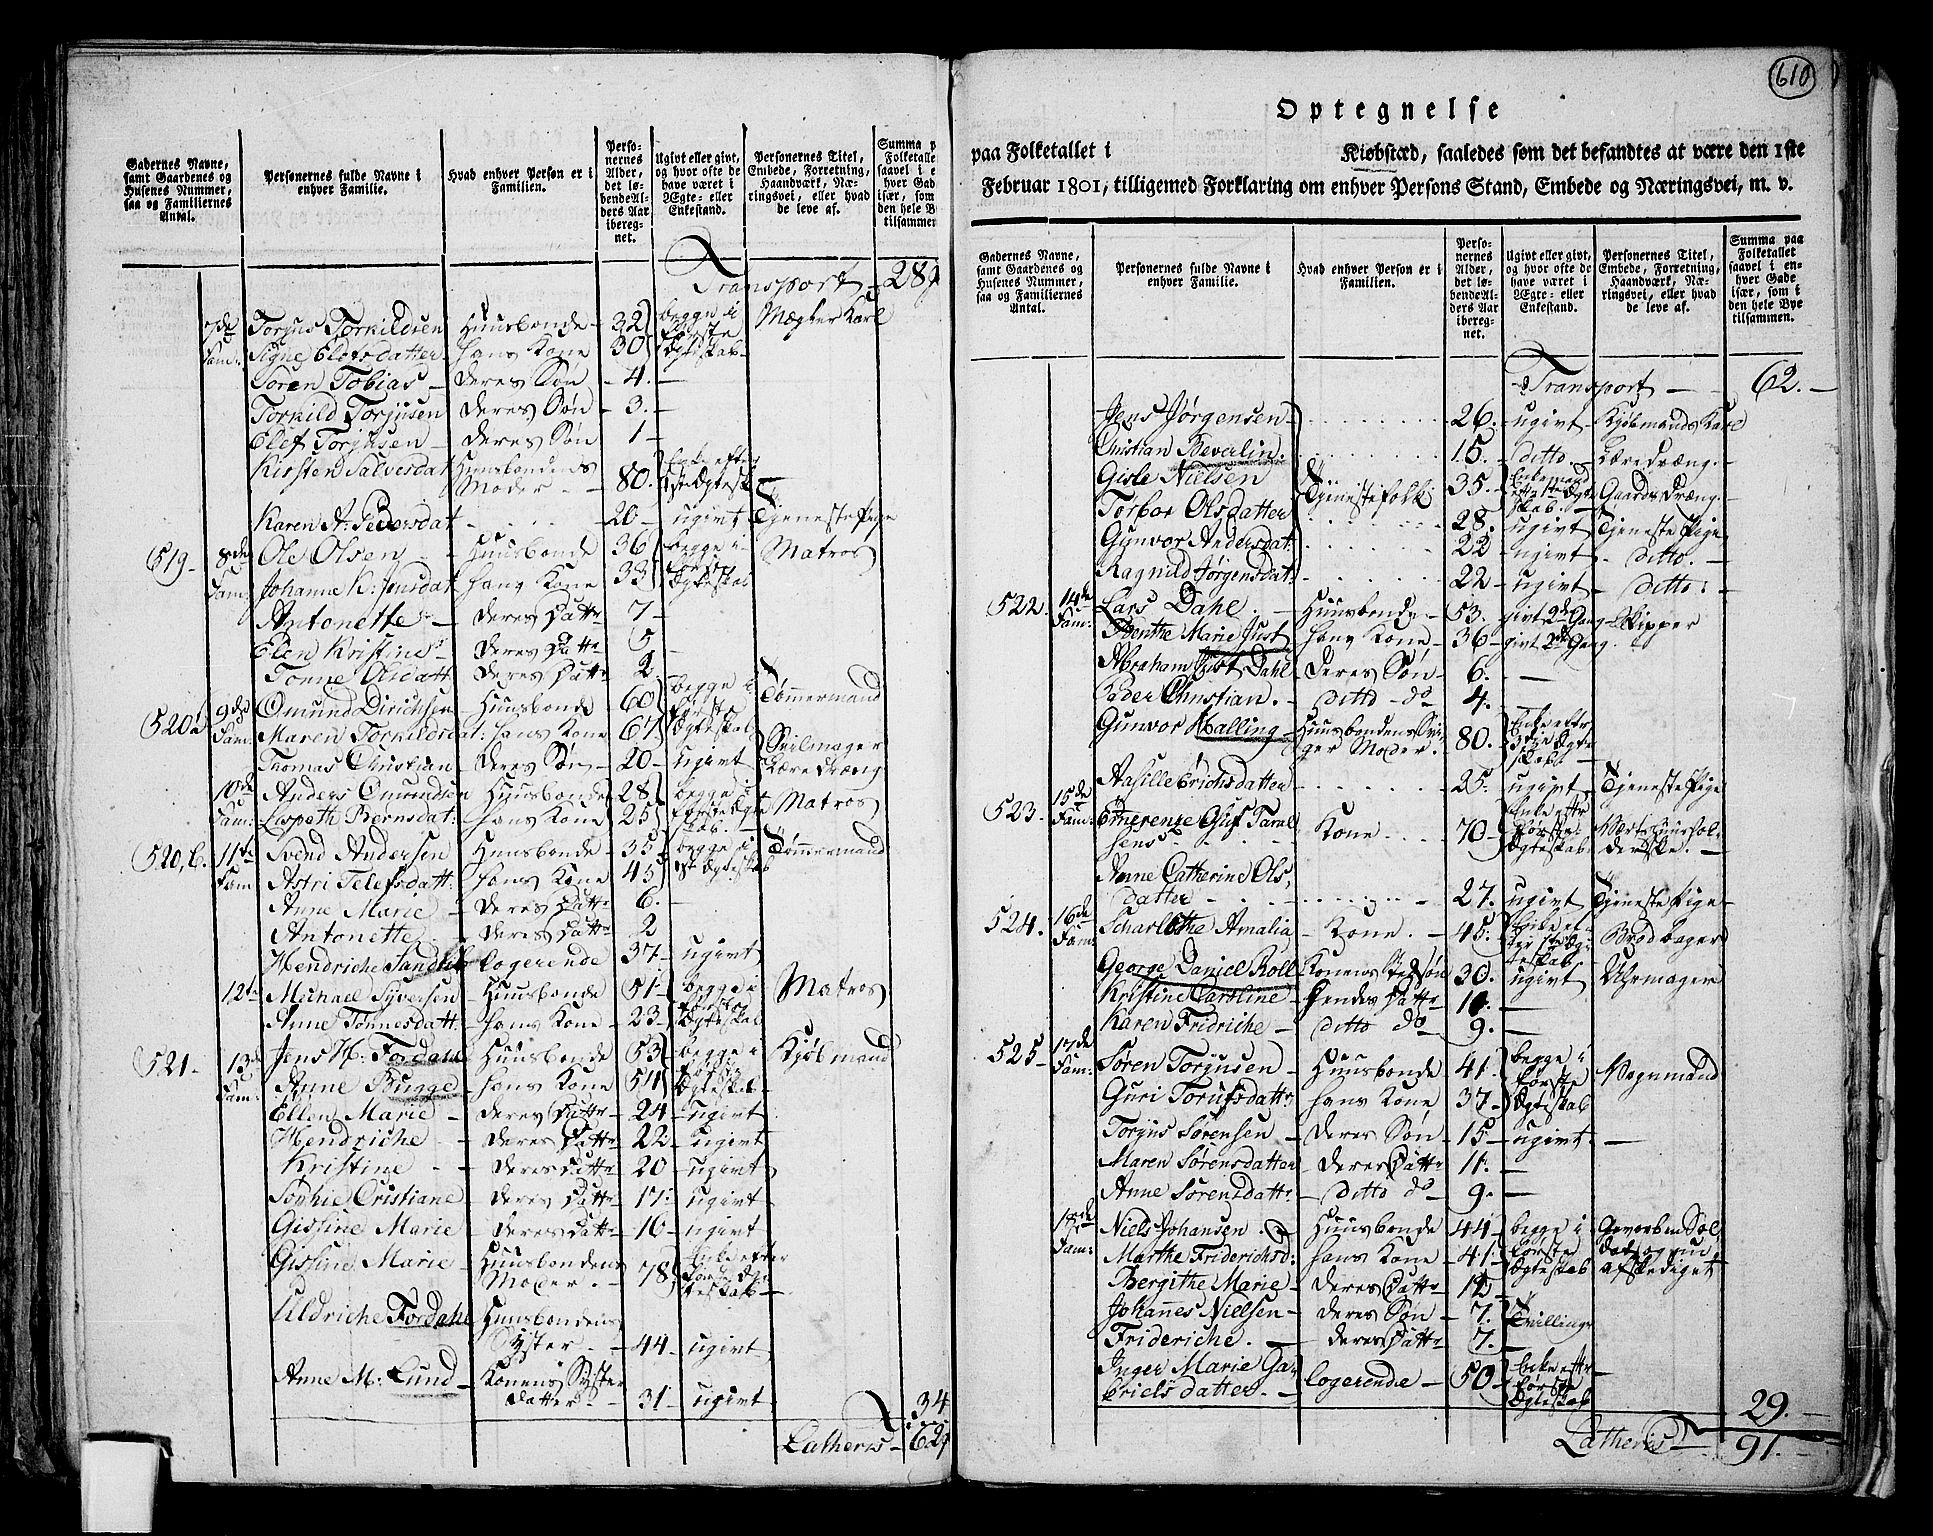 Gadernes Navne, samt Gaardenes og Husenes Nummer, saa og Familiernes Antal.
Personernes fulde Navne i enhver Familie.
Hvad enhver Person er i Familien.
Personernes Alder, det løbende Alders Aar iberegnet.
Ugivt eller givt, og hvor ofte de have været i Ægte- eller Enkestand.
Personernes Titel, Embede, Forretning, Haandværk, Næringsvei, eller hvad de leve af.
Transport - 28
7de Fam: Torjus Torkildsen Huusbonde 32 begge i første Ægteskab Mægler Karl
Signe Elefsdatter hans Kone 30
Søren Tobias deres Søn 4.
Torkild Torjusen deres Søn 3.
Elef Torjusen deres Søn 1
Kirsten Salvesdat Huusbondens Moder 80. Enke efter 1ste Ægtesk
Karen A: Pedersdat 20 ugivt Tjeneste Pige
519 8de Fam: Ole Olsen Huusbonde 36 begge i første Ægteskab Matros
Johanne K: Jensdat hans Kone 33
Antonette deres Datr 7
Elen Kristine deres Datr 5
Tonne Olsdatt deres Datr 2
520a 9de Fam: Omund Dirichsen Huusbonde 60 begge i første Ægteskab Tømmermand
Maren Torkildsdat: hans Kone 67
Thomas Christian deres Søn 20 ugivt Seilmager Læredræng
10de Fam: Anders Omundsen Huusbonde 28 begge i første Ægteskab. Matros
Lispeth Bernsdat: hans Kone 25
520,b. 11te Fam Svend Andersen Huusbonde 35 begge i 1st Ægteskab Tømmermand
Astri Telefsdatt: hans Kone 45
Anne Marie deres Datr 6.
Antonette deres Datr 2
Hendriche Sandb logerende 37 ugivt
12te Michael Syversen Huusbonde 51 begge i første Ægteskab Matros
Anne Tønnesdatt. hans Kone 23
521. 13de Fam: Jens H: Fordahl Huusbonde 53 begge i første Ægteskab Kjøbmand
Anne Bugge hans Kone 54
Ellen Marie deres Datr 24 ugivt
Hendriche deres Datr 22 ugivt
Kristine deres Datr 20 ugivt
Sophie Cristiane deres Datr 17. ugivt
Gisline Marie deres Datr 16 ugivt
Gisline Marie Huusbondens Moder 78 Enke efter første Ægteskab
Uldriche Fordahl Huusbondens Syster 44 ugivt
Anne M: Lund Konens Syster datter 31 ugivt
34
Latheris 62
610
Optegnelse
paa Folketallet i Kiøbstæd, saaledes som det befandtes at være den 1ste
Februar 1801, tilligemed Forklaring om enhver Persons Stand, Embede og Næringsvei, m. v.
Gadernes Navne, samt Gaardenes og Husenes Nummer, saa og Familiernes Antal.
Personernes fulde Navne i enhver Familie.
Hvad enhver Person er i Familien.
Personernes Alder, det løbende Alders Aar iberegnet.
Ugivt eller givt, og hvor ofte de have været i Ægte- eller Enkestand.
Personernes Titel, Embede, Forretning, Haandværk, Næringsvei, eller hvad de leve af.
Summa paa Folketallet saavel i enhver Gade især, som i den hele Bye tilsammen.
Transport 62.
Jens Jørgensen 26. ugivt Kjøbmands Karl
Christian Bevalin. 15. ditto. Læredræng.
Gisle Nielsen Tjenestefolk 35. Enkemand efter 1ste Ægteskab. Gaards Dræng.
Torbor Olsdatter 28. ugivt Tjeneste Pige
Gunvor Andersdat: 22 ugivt ditto.
Ragnild Jørgensdat: 22 ugivt ditto:
522. 14de Fam: Lars Dahl. Huusbonde 53. givt 2de Gang Skipper
Benthe Marie Just hans Kone 36 givt 2de Gang.
Abraham Just Dahl deres Søn 6.
Peder Christian. ditto do 4.
Gunvor Malling Huusbondens Sviger Moder. 80. Enke eftr 3die Ægteskab
Aasille Erichsdatter 25. ugivt Tjeneste Pige
523. 15de Fam: Emerenze Oluf Tarald sens Kone 70 Enke eftr første Ægteskab. Værtshuusholderske.
Anne Catherine Ols, datter 27. ugivt Tjeneste Pige
524. 16de Fam: Scharlothe Amalia Kone. 45. Enke efter 1ste Ægteskab Brodbager
George Daniel Roll Konens Stedsøn 30. ugivt Uhrmager
Kristine Caroline hendes Datr 10.
Karen Fridriche ditto do 9.
525 17de Fam: Søren Torjusen Huusbonde 41. begge i første Ægteskab Vognmand
Guri Torufsdatr. hans Kone 37
Torjus Sørensen deres Søn 15 ugivt.
Maren Sørensdatter deres Datr 11.
Anne Sørensdatr. ditto do 9.
18de Fam: Niels Johansen. Huusbonde 44 begge i første Ægteskab Gevorben Soldat og nu afskediget
Marthe Friderichsd: hans Kone 41
Bergithe Marie deres Datr 12
Johannes Nielsen deres Søn 7. Tvillinge
Frideriche. deres Datr 7.
Inger Marie Gabriels datter. logerende 50 Enke eftr første Ægteskab
29.
Latheris 91.